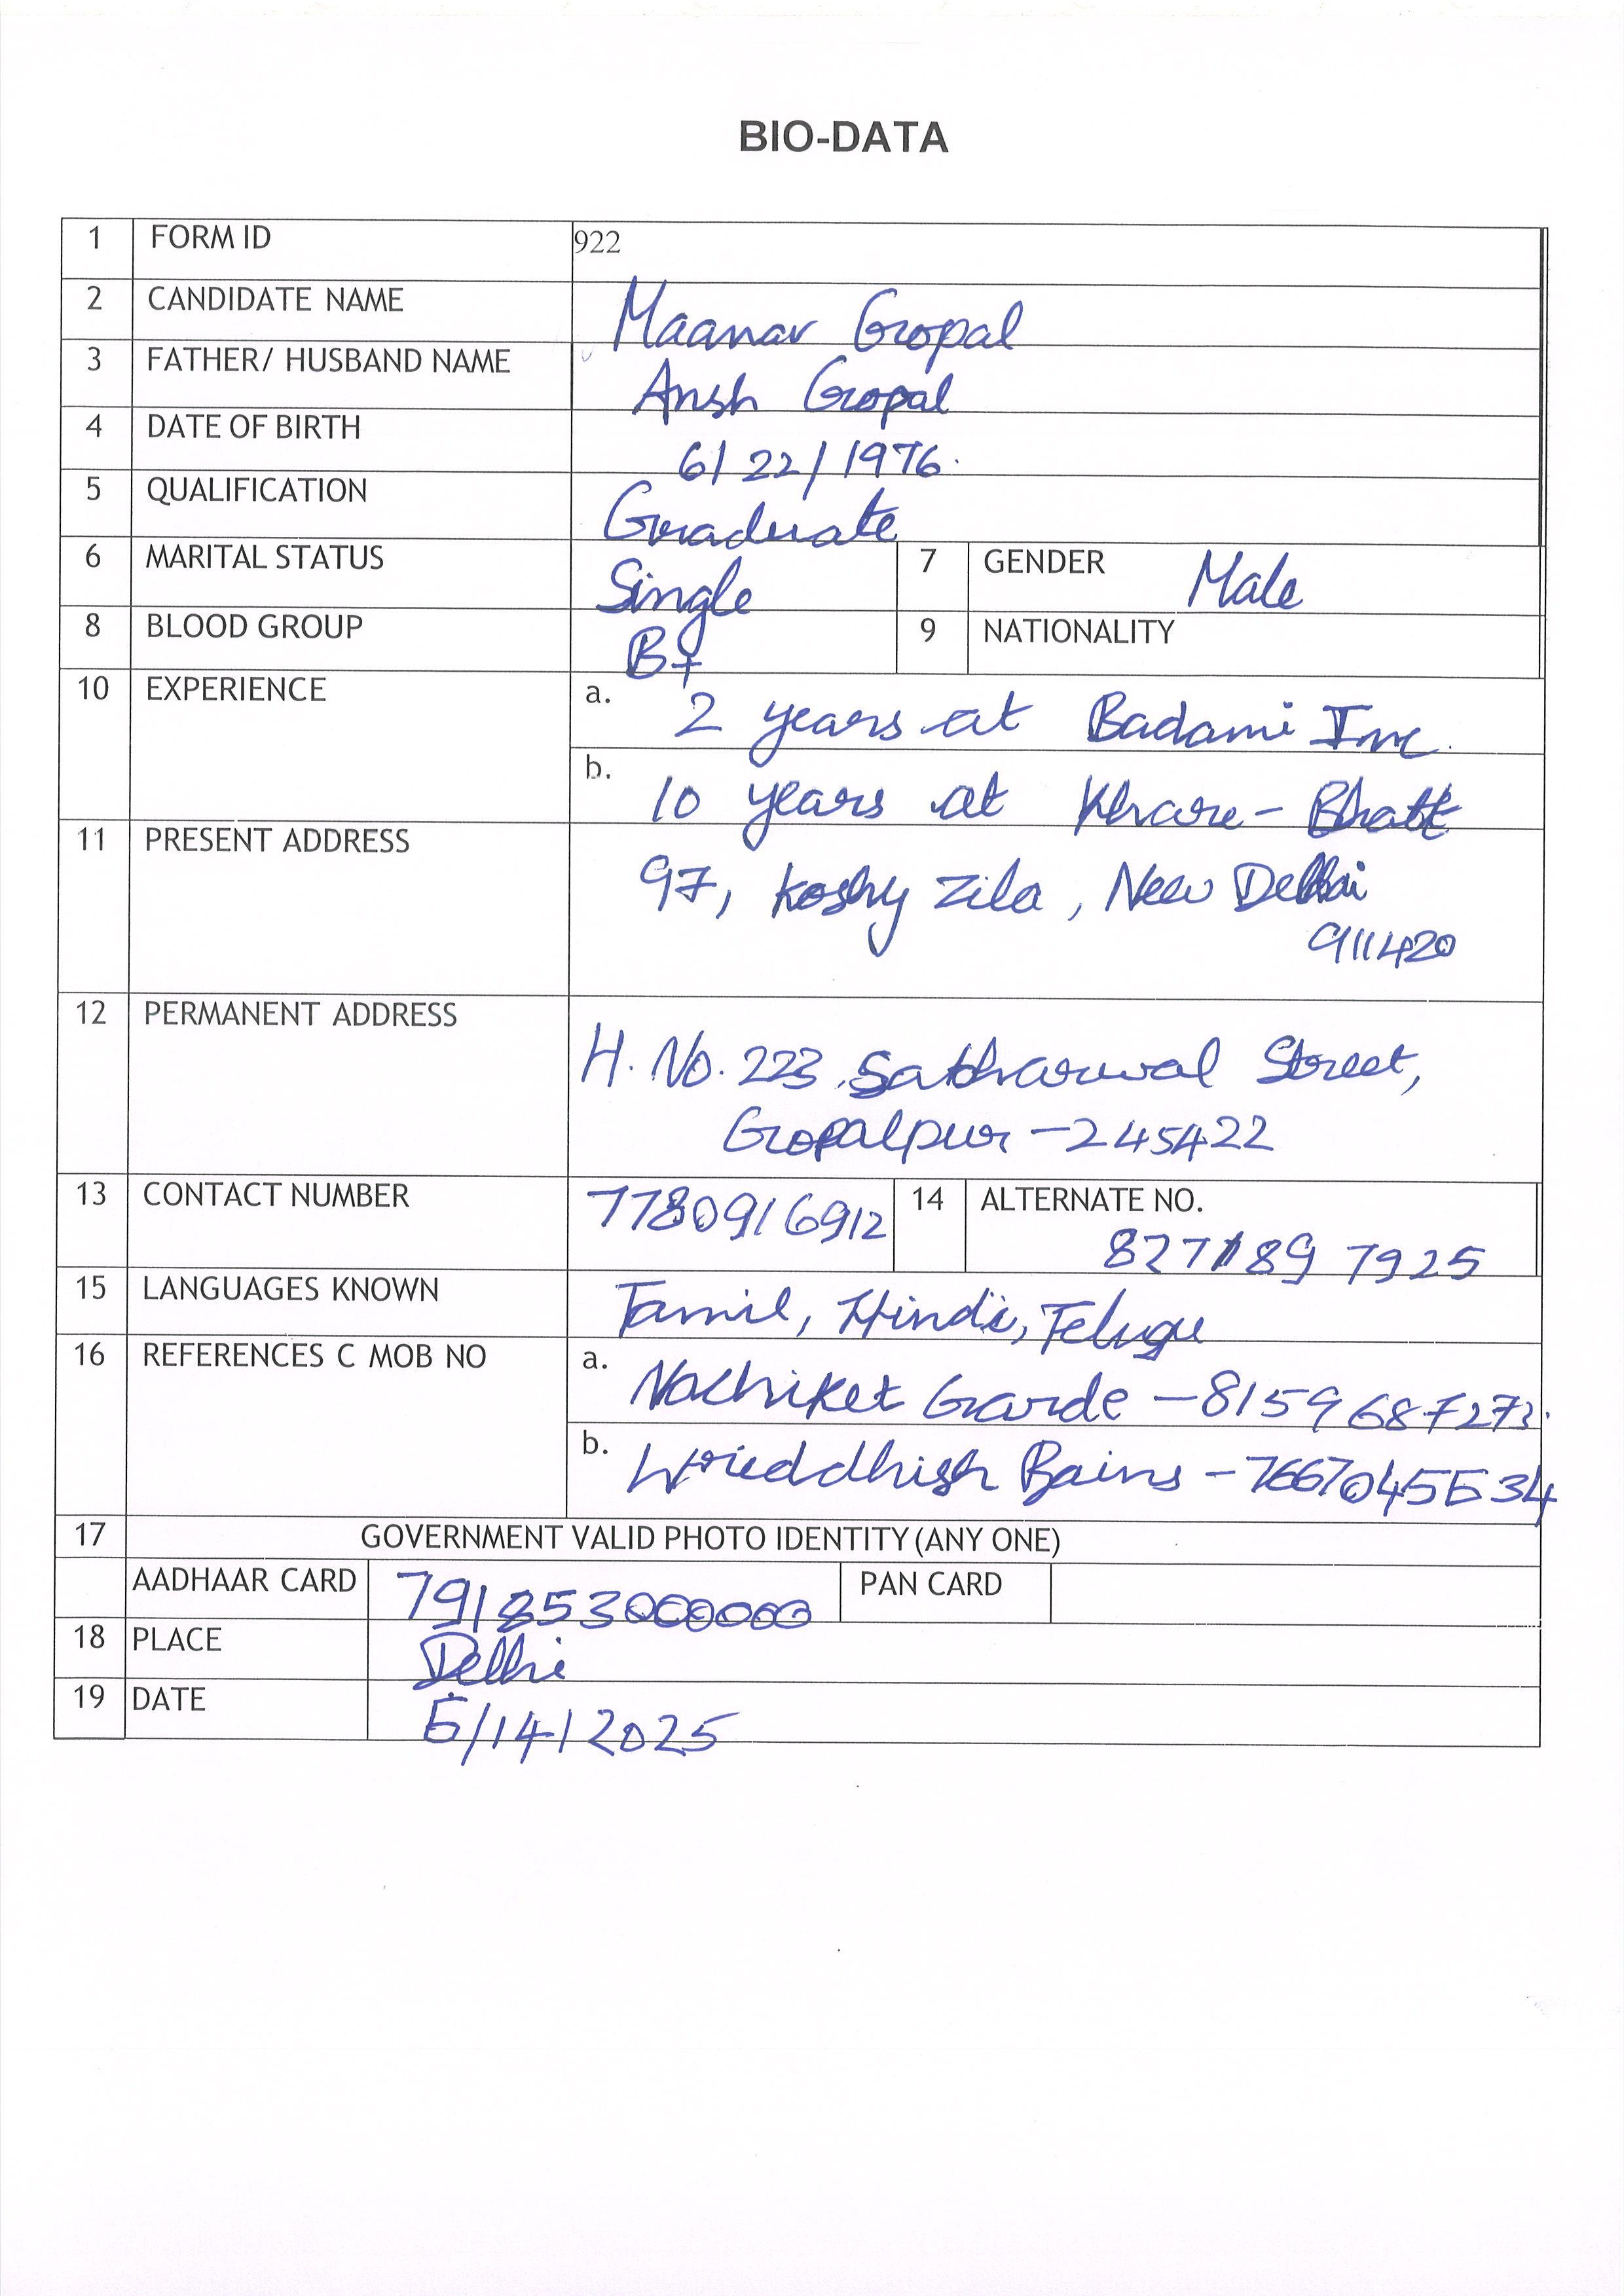 BIO-DATA
1 FORM ID 922
2 CANDIDATE NAME Maanav Gopal
3 FATHER/ HUSBAND NAME Ansh Gopal
4 DATE OF BIRTH 6/22/1976.
5 QUALIFICATION Graduate
6 MARITAL STATUS Single 7 GENDER Male
8 BLOOD GROUP B+ 9 NATIONALITY
10 EXPERIENCE a. 2 years at Badami Inc.
b. 10 years at Khare-Bhatt
11 PRESENT ADDRESS 97, Koshy Zila, New Delhi
911420
12 PERMANENT ADDRESS
H. No. 223, Sabharwal Street,
Gopalpur -245422
13 CONTACT NUMBER 7780916912 14 ALTERNATE NO.
8271897925
15 LANGUAGES KNOWN Tamil, Hindi, Telugu
16 REFERENCES C MOB NO a. Nachiket Garde -8159687273.
b. Wriddhish Bains -7667045534
17 GOVERNMENT VALID PHOTO IDENTITY(ANY ONE)
AADHAAR CARD 791853000000 PAN CARD
18 PLACE Delhi
19 DATE 6/14/2025